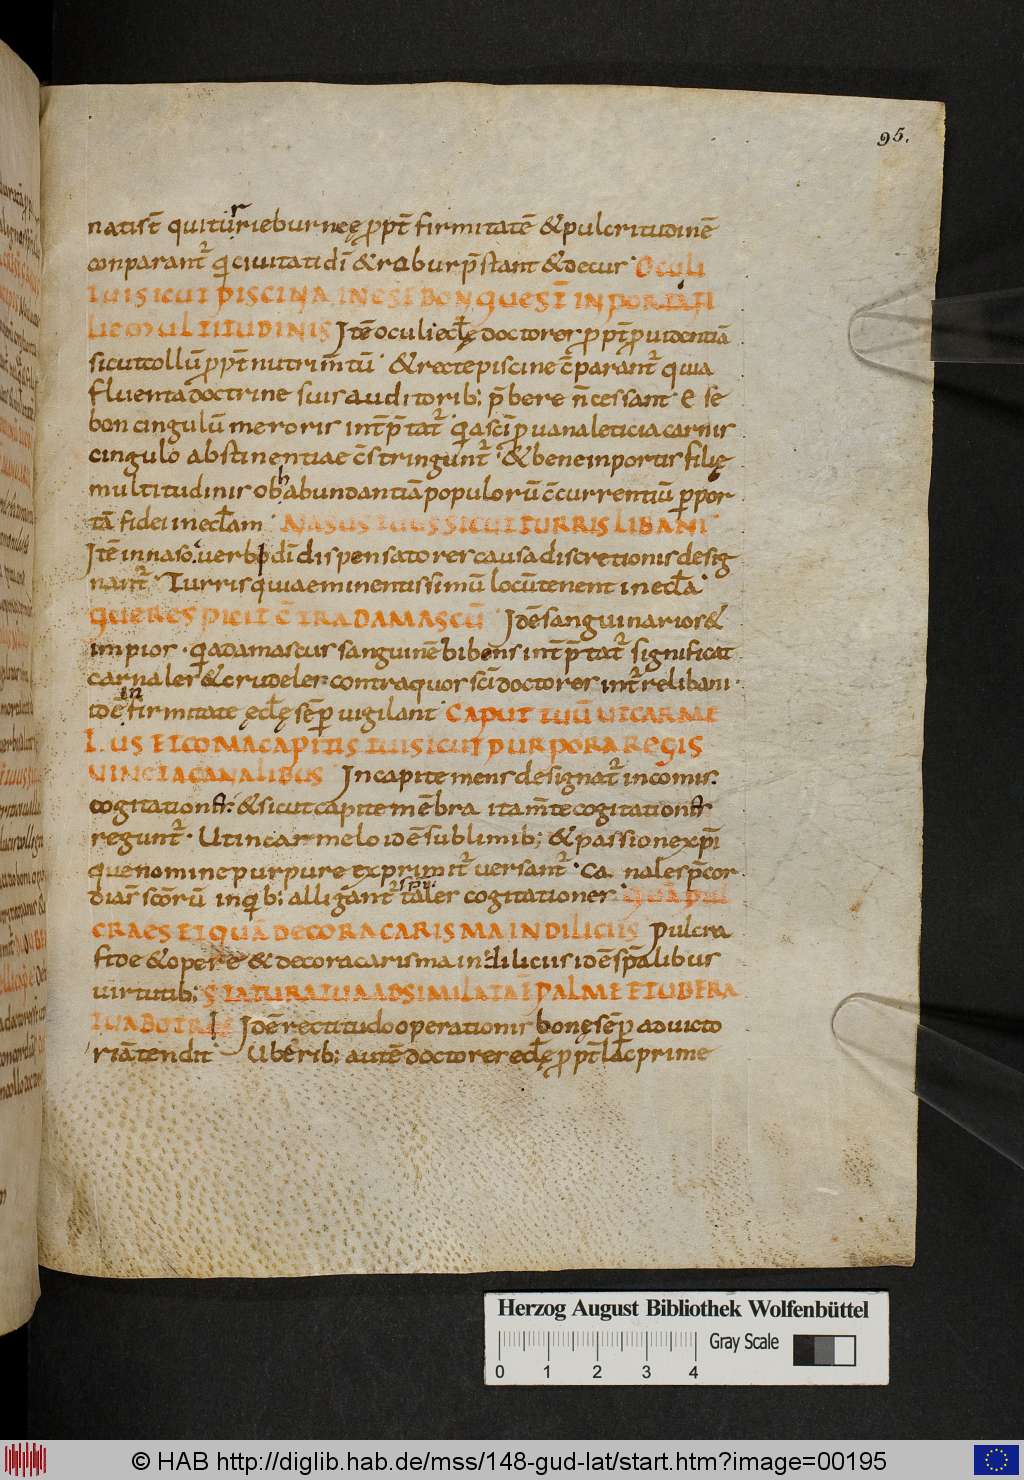 95.
natis ē qui turri eburneę ꝓpt̄ firmitatē & pulcritudinē
conparant᷑ qi ciuitati dī & robur p̄stant & decus Oculi
tui sicut piscina in esebon que sunt in porta fi
lie multitudinis Itē oculi eclę doctores ꝓpt̄ ꝓuidentiā
sicut collū ꝓpt̄ nutrim̄tū & recte piscine c̄parant᷑ quia
fluenta doctrine suis auditorib; p̄bere n̄ cessant Ese
bon cingulū meroris int̄p̄tat᷑ qi a sc̄i ꝓ uana leticia carnis
cingulo abstinentiae c̄stringunt᷑ & bene in portis filię
multitudinis ob habundantiā populorū c̄currentiū p por
tā fidei in eclam Nasus tuus sicut turris libani
Itē in naso uerbi dī dispensatores causa discretionis desig
nant᷑ Turris quia eminentissimū locū tenent in ecla
que respicit c̄tra damascū Idē sanguinarios &
impios qia damascus sanguinē bibens int̄p̄tat᷑ significat
carnales & crudeles contra quos sc̄i doctores int᷑res libani
idē in firmitate ęclę sēp uigilant Caput tuū ut carme
lus et coma capitis tui sicut purpora regis
uincta canalibus In capite mens designat᷑ in comis
cogitationes & sicut capite mēbra ita m̄te cogitationes
regunt᷑ Ut in carmelo idē sublimib; & passione xp̄i
que nomine purpure exprimit᷑ uersant᷑ Canales p̄cor
dia s̄ sc̄orū in qib; alligant᷑ tales cogitationes Quā pul
cra es et quā decora carisma in diliciis Pulcra
fide & opere & decora carisma in diliciis idē sp̄alibus
uirtutib; Statura tua adsimilata ē palme et ubera
tua botris Idē rectitudo operationis bonę sēp ad uicto
riā tendit Uberib; autē doctores eclę ꝓpt̄ lac prime
Herzog August Bibliothek Wolfenbüttel
Gray Scale
0 1 2 3 4
© HAB http://diglib.hab.de/mss/148-gud-lat/start.htm?image=00195